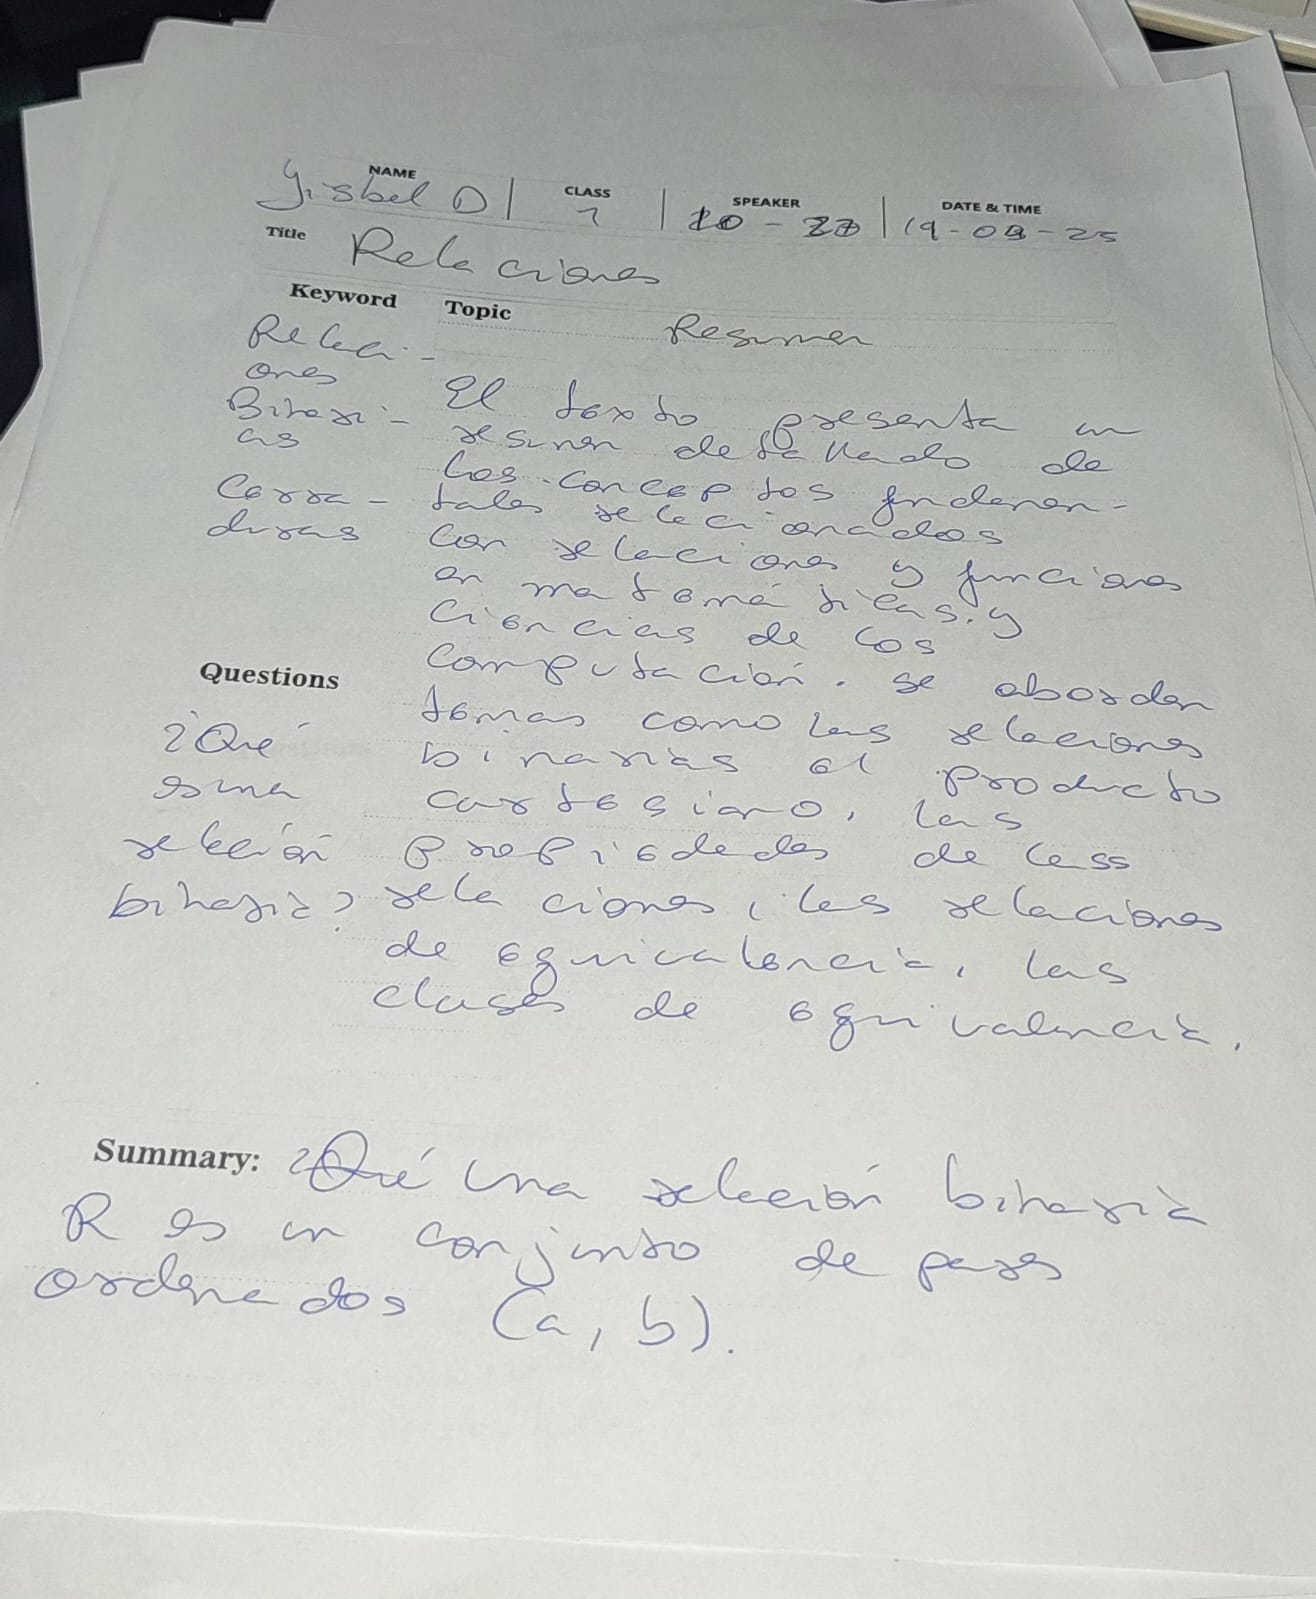 NAME CLASS SPEAKER DATE & TIME
Yisbel D 1 20 - 19-09-25
Title Relaciones
Keyword Topic Resumen
Relaci-
ones
Binari-
as
Cerra-
duras
El texto presenta un
resumen detallado de
los conceptos fundamen-
tales relacionados
con relaciones y funciones
en matemáticas y
ciencias de los
computación. se abordan
temas como las relaciones
binarias el producto
cartesiano, las
propiedades de lass
relaciones, las relaciones
de equivalencia, las
clases de equivalencia.
Questions
¿Qué
es una
relación
binaria?
Summary: ¿Qué una relación binaria
R es un conjunto de pares
ordenados (a, b).